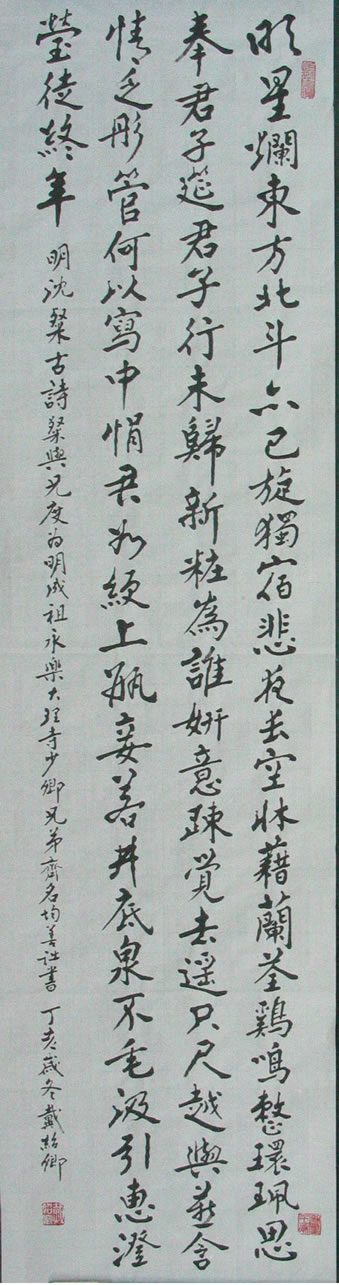 明星爛東方北斗亦已旋獨宿悲夜長空牀藉蘭荃鷄鳴整環珮思
奉君子筵君子行未歸新粧為誰妍意疎覺去遥只尺越與燕含
情乏彤管何以寫中悁君如綆上瓶妾若井底泉不毛汲引惠澄
瑩徒終年
明沈粲古詩粲與兄度為明成祖永樂大理寺少卿兄弟齊名均善書 丁亥歲冬戴紹卿